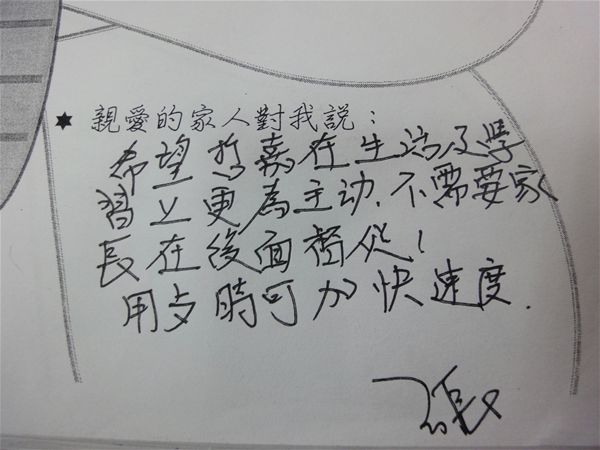 ★ 親愛的家人對我說：
希望嘉在生活及學
習上更為主动.不需要家
長在後面督促!
用歺時可加快速度.
張